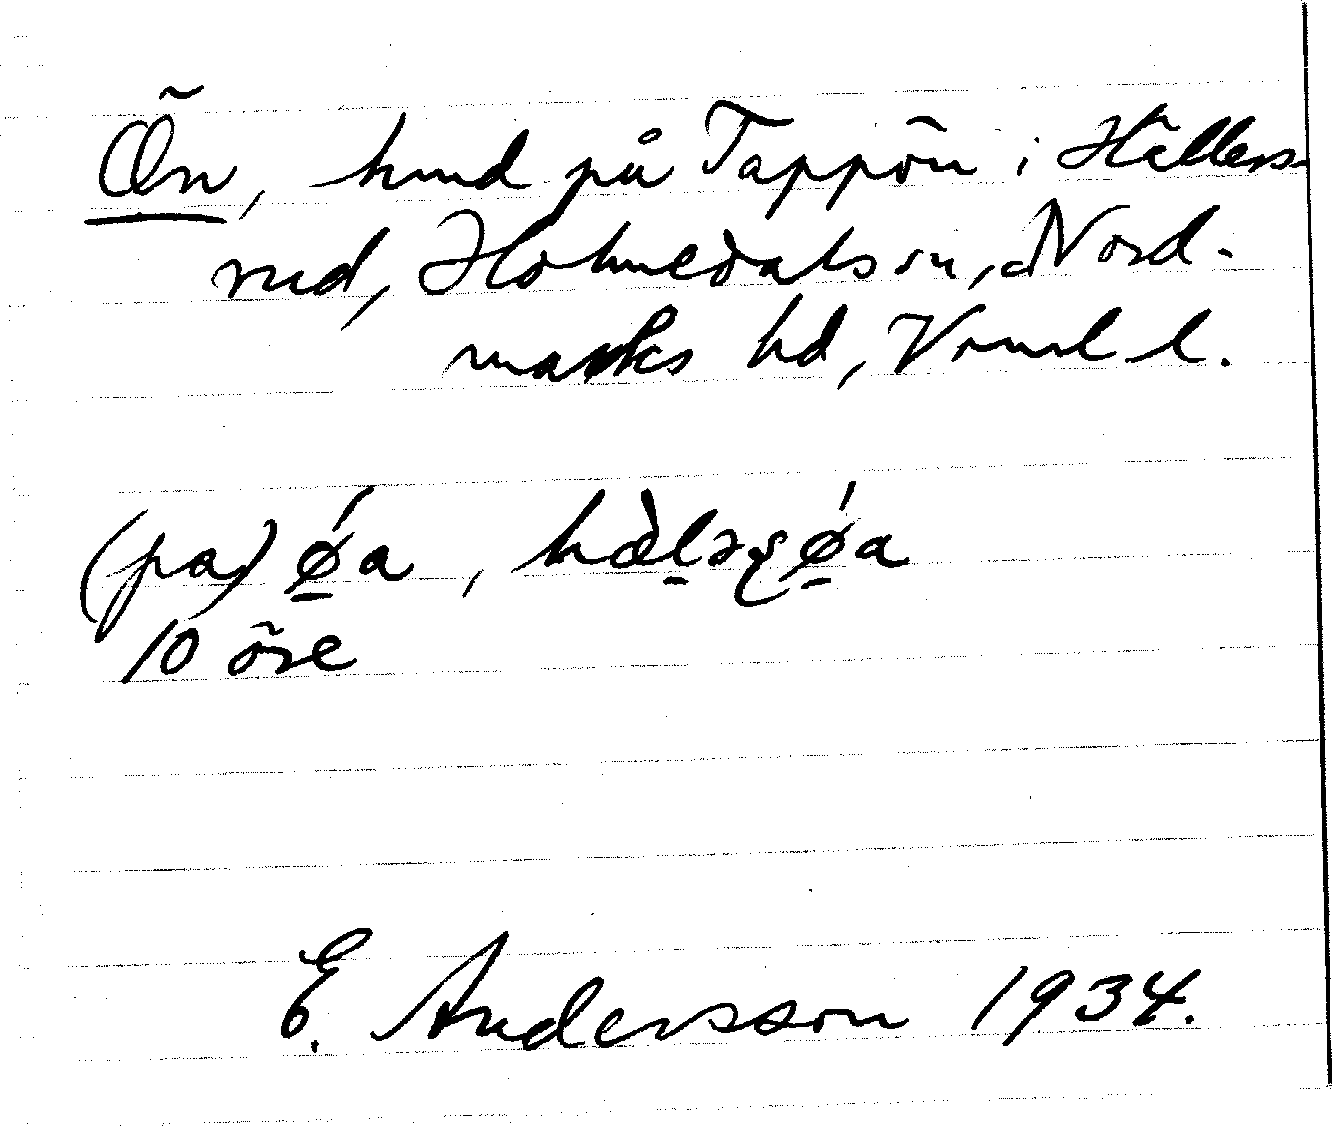 Ön, hmd på Tappön i Hällers-
rud, Holmedals sn, Nord-
marks hd, Vrml l.
(pa) ǿ̱a, hæ̀l̠əʂǿ̱a
10 öre
E. Andersson 1934.